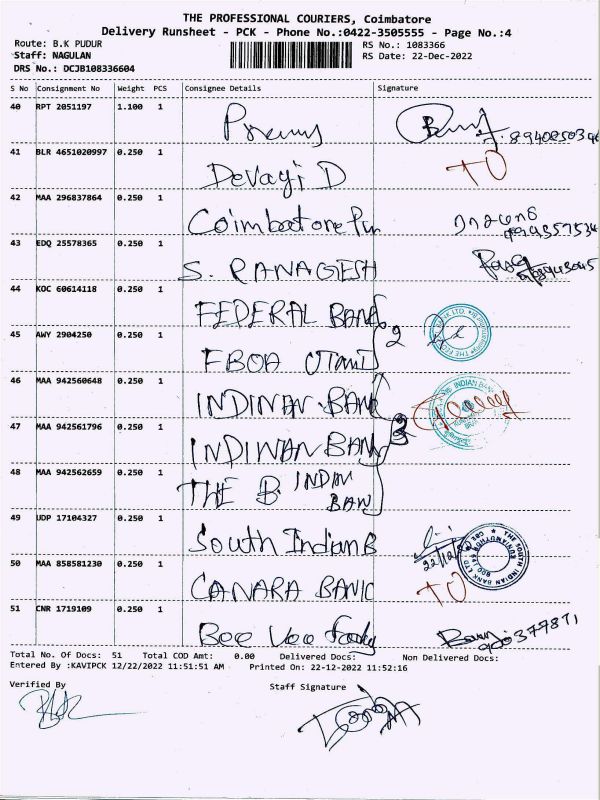 THE PROFESSIONAL COURIERS, Coimbatore
Delivery Runsheet - PCK - Phone No.:0422-3505555 - Page No.:4
Route: B.K PUDUR RS No.: 1083366
Staff: NAGULAN RS Date: 22-Dec-2022
DRS No.: DCJB108336604
S No Consignment No Weight PCS Consignee Details Signature
40 RPT 2051197 1.100 1
41 BLR 4651020997 0.250 1 Devayi D TO
42 MAA 296837864 0.250 1 Coimbatore
43 EDQ 25578365 0.250 1 S. RANAGESH
44 KOC 60614118 0.250 1 FEDERAL BANK 2
45 AWY 2904250 0.250 1 FBOA
46 MAA 942560648 0.250 1 INDINAN BANK
47 MAA 942561796 0.250 1 INDIWAN BANK 3
48 MAA 942562659 0.250 1 THE B INDIAN BAN
49 UDP 17104327 0.250 1 South Indian B
50 MAA 858581230 0.250 1 CANARA BANK TO
51 CNR 1719109 0.250 1 Bee Vee
Total No. Of Docs: 51 Total COD Amt: 0.00 Delivered Docs: Non Delivered Docs:
Entered By :KAVIPCK 12/22/2022 11:51:51 AM Printed On: 22-12-2022 11:52:16
Verified By Staff Signature